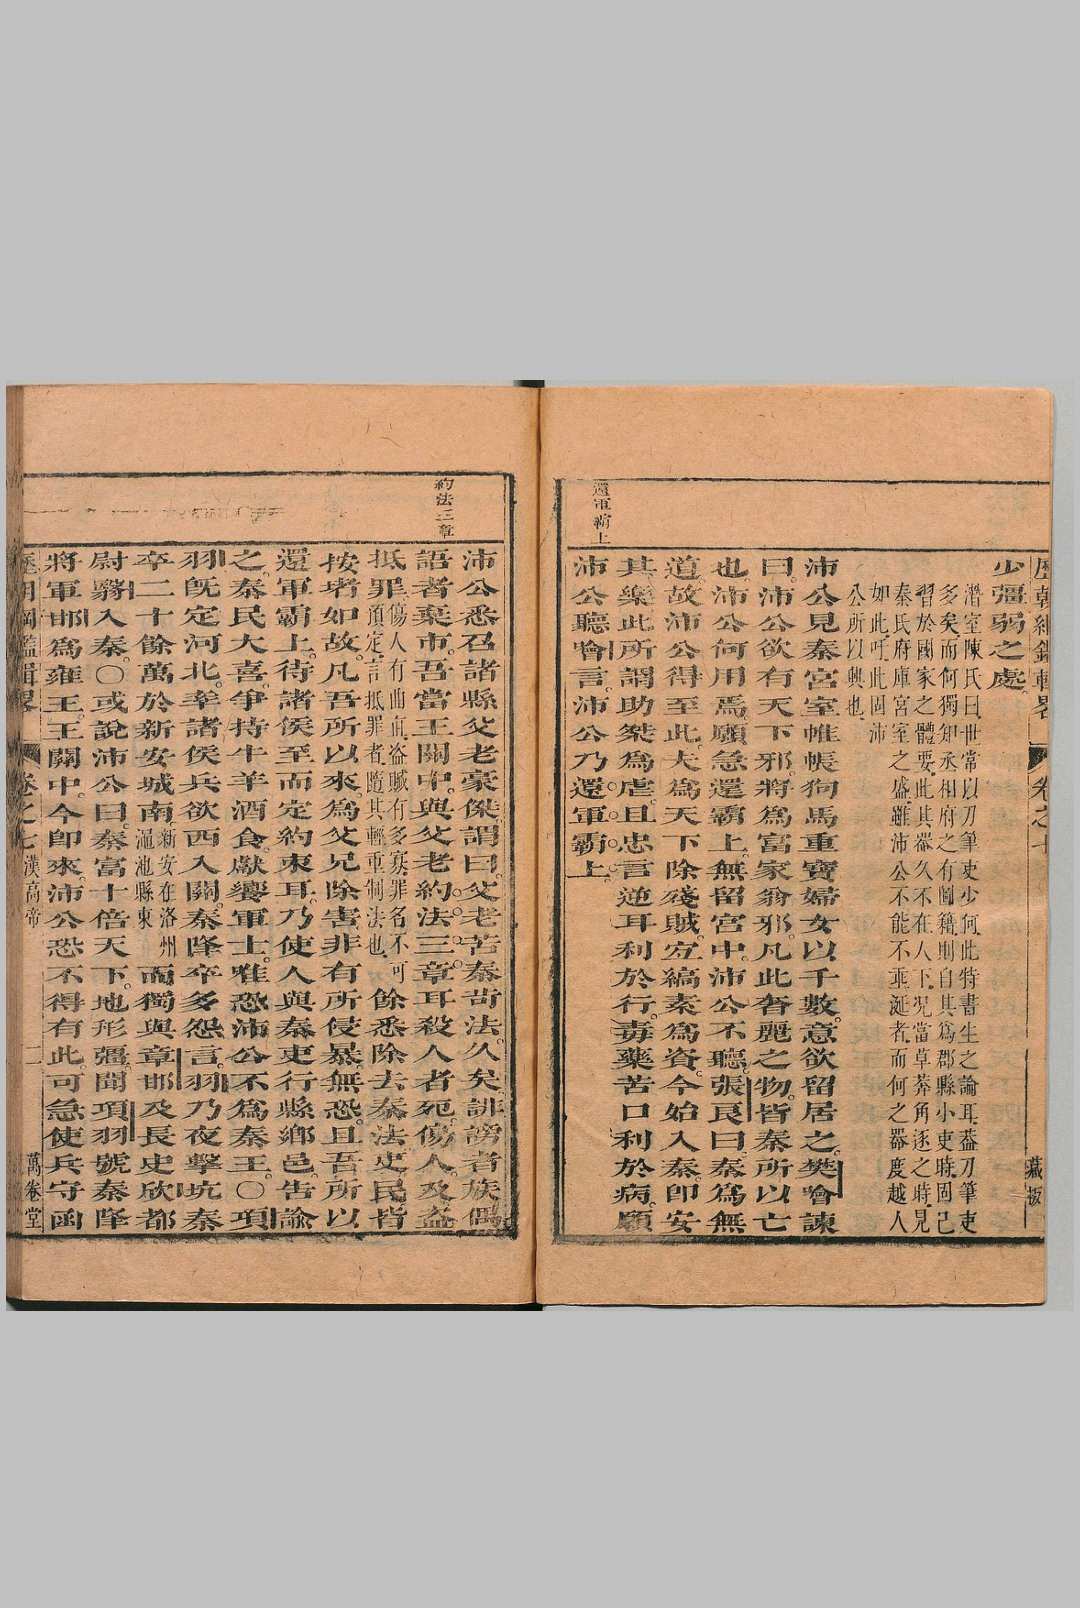 藏板
少彊弱之處
潛室陳氏曰世常以刀筆吏少何此特書生之論耳葢刀筆吏
多矣而何獨知丞相府之有圖籍則自其爲郡縣小吏時固已
習於國家之體要此其器久不在人下况當草莽角逐之時見
秦氏府庫宮室之盛雖沛公不能不垂涎者而何之器度越人
如此吁此固沛
公所以興也
沛公見秦宮室帷帳狗馬重寶婦女以千數意欲留居之樊噲諫
曰沛公欲有天下邪將爲富家翁邪凡此奢麗之物皆秦所以亡
也沛公何用焉願急還霸上無留宮中沛公不聽張良曰秦爲無
道故沛公得至此夫爲天下除殘賊宜縞素爲資今始入秦卽安
其樂此所謂助桀爲虐且忠言逆耳利於行毒藥苦口利於病願
還軍霸上
沛公聽噲言沛公乃還軍霸上
約法三章
沛公悉召諸縣父老豪傑謂曰父老苦秦苛法久矣誹謗者族偶
語者棄市吾當王關中與父老約法三章耳殺人者死傷人及盜
抵罪傷人有曲直盜贓有多寡罪名不可
預定言抵罪者隨其輕重制法也餘悉除去秦法吏民皆
按堵如故凡吾所以來爲父兄除害非有所侵暴無恐且吾所以
還軍霸上待諸侯至而定約束耳乃使人與秦吏行縣鄉邑告諭
之秦民大喜爭持牛羊酒食獻饗軍士唯恐沛公不爲秦王〇項
羽旣定河北率諸侯兵欲西入關秦降卒多怨言羽乃夜擊坑秦
卒二十餘萬於新安城南新安在洛州
澠池縣東而獨與章邯及長史欣都
尉翳入秦〇或說沛公曰秦富十倍天下地形彊聞項羽號秦降
將軍邯爲雍王王關中今卽來沛公恐不得有此可急使兵守函
卷之七 漢高帝 二 萬卷堂